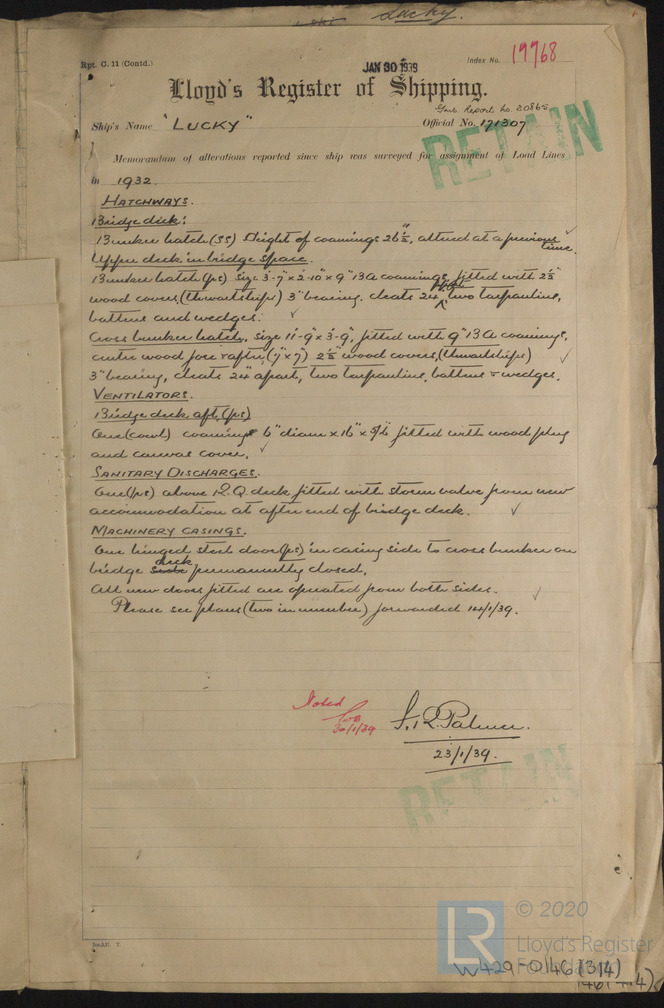 Lucky.
Rpt. C. 11 (Contd.)
JAN 30 1939
Index No. 19768
Lloyd's Register of Shipping.
Report No. 20865
Ship's Name "LUCKY" Official No. 171307
RETAIN
Memorandum of alterations reported since ship was surveyed for assignment of Load Lines
in 1932.
HATCHWAYS.
Bridge deck:
Bunker hatch (ss) Height of coamings 26½", altered at a previous time.
Upper deck in bridge space.
Bunker hatch (ps) size 3'-7" x 2'-10" x 9" BA coamings, fitted with 2½"
wood covers, (thwartships) 3" bearing, cleats 24" apart, two tarpaulins,
battens and wedges.
Cross bunker hatch, size 11'-9" x 3'-9", fitted with 9" BA coamings,
centre wood fore & after (7" x 7") 2½" wood covers, (thwartships)
3" bearing, cleats 24" apart, two tarpaulins, battens & wedges.
VENTILATORS.
Bridge deck aft, (ps)
One (cowl) coaming 6" diam x 16" x 5/16 fitted with wood plug
and canvas cover.
SANITARY DISCHARGES.
One (ps) above R.Q. deck fitted with storm valve from new
accommodation at after end of bridge deck.
MACHINERY CASINGS.
One hinged steel door (ps) in casing side to cross bunker on
bridge deck permanently closed.
All new doors fitted are operated from both sides.
Please see plans (two in number) forwarded 14/1/39.
Noted
30/1/39
Palmer.
23/1/39.
RETAIN
LR
© 2020
Lloyd's Register
Foundation
W429-0146 (3/4)